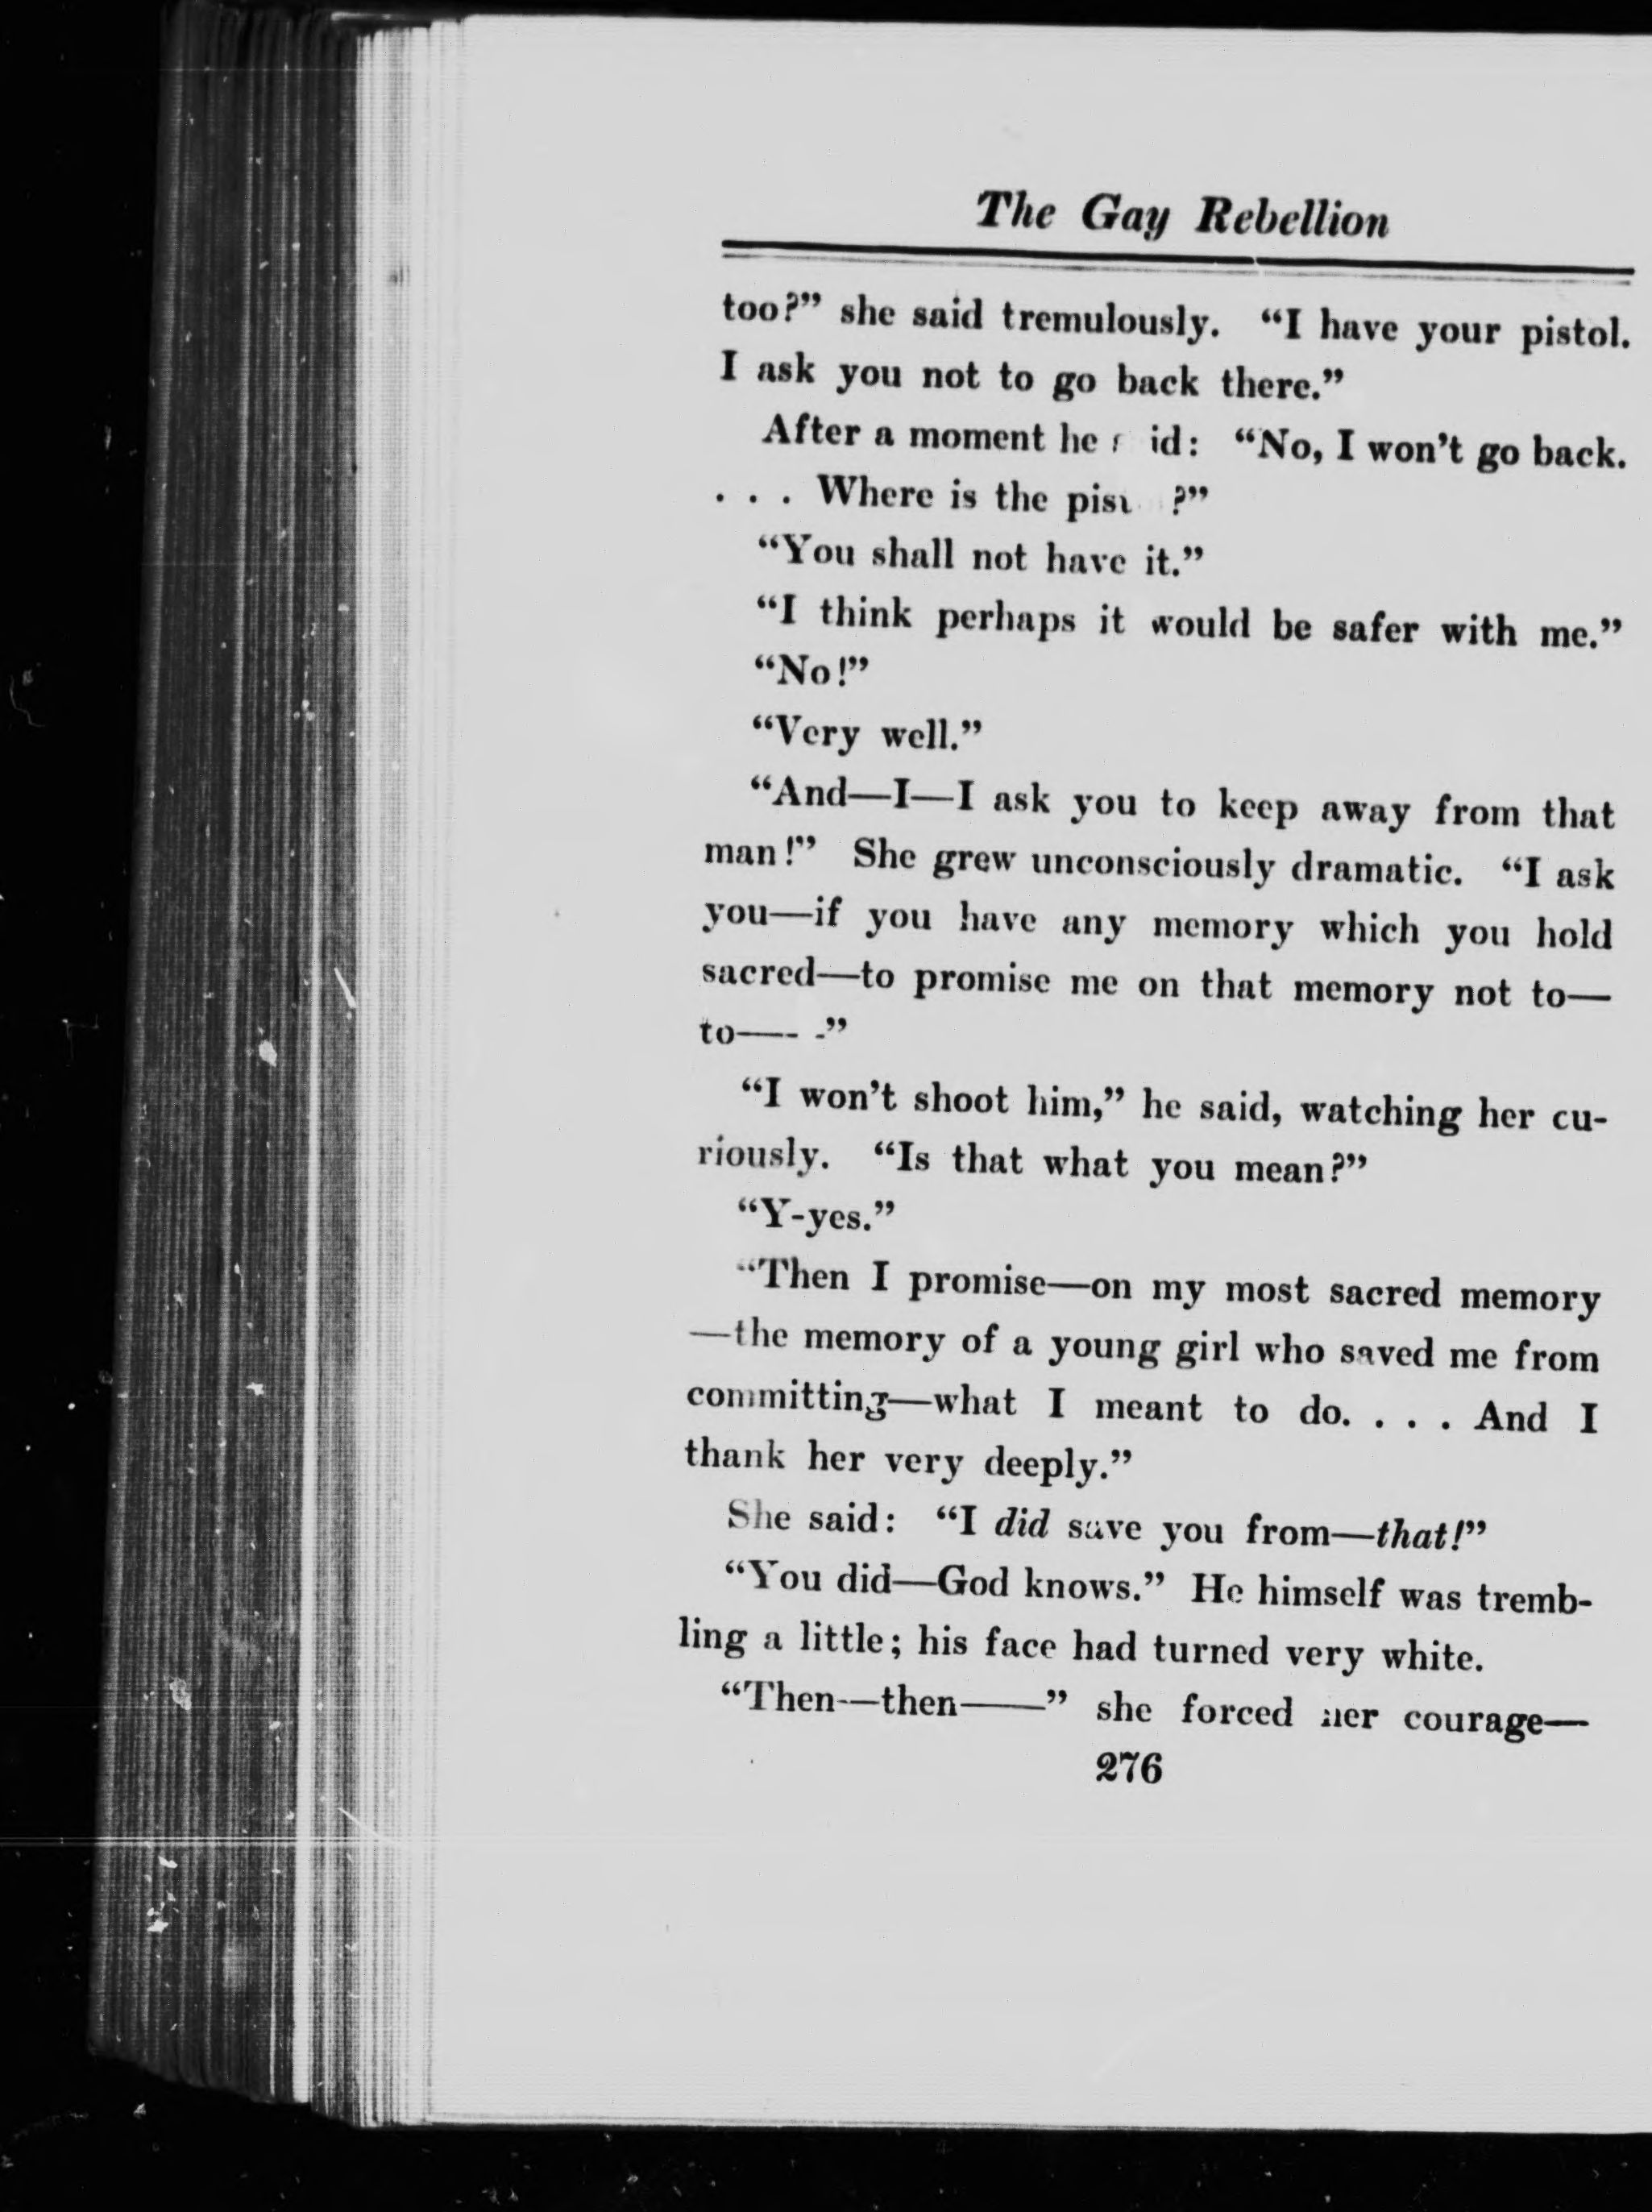 The Gay Rebellion
too?” she said tremulously. “I have your pistol.
I ask you not to go back there.”
After a moment he said: “No, I won’t go back.
. . . Where is the pistol?”
“You shall not have it.”
“I think perhaps it would be safer with me.”
“No!”
“Very well.”
“And—I—I ask you to keep away from that
man!” She grew unconsciously dramatic. “I ask
you—if you have any memory which you hold
sacred—to promise me on that memory not to—
to——”
“I won’t shoot him,” he said, watching her cu-
riously. “Is that what you mean?”
“Y-yes.”
“Then I promise—on my most sacred memory
—the memory of a young girl who saved me from
committing—what I meant to do. . . . And I
thank her very deeply.”
She said: “I did save you from—that!”
“You did—God knows.” He himself was tremb-
ling a little; his face had turned very white.
“Then—then——” she forced her courage—
276